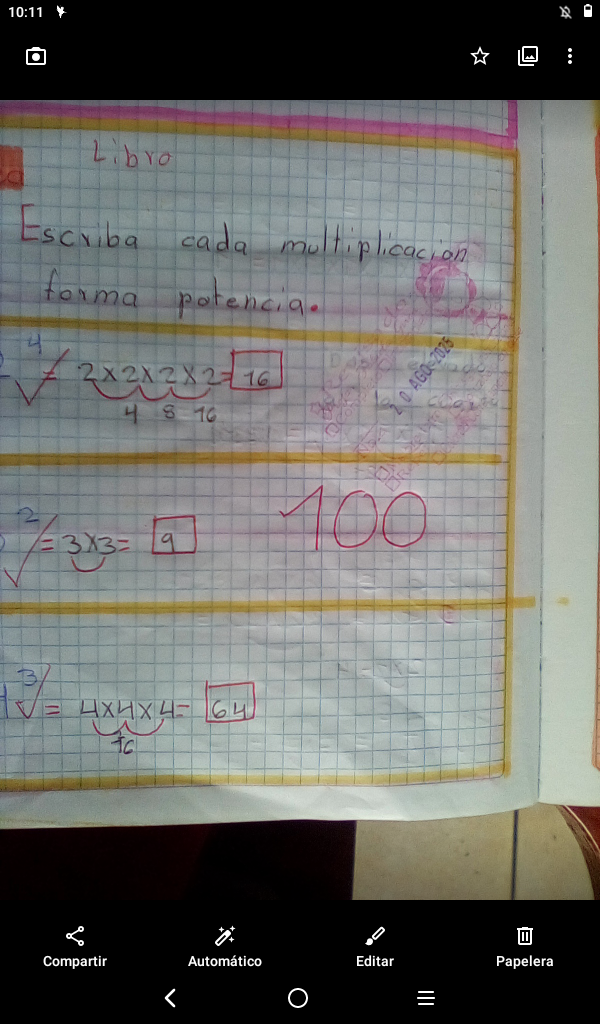 10:11
Libro
Escriba cada multiplicación
forma potencia.
4
= 2x2x2x2= 16
4 8 16
20 AGO 2025
2
= 3x3= 9
100
3
4 = 4x4x4= 64
16
Compartir Automático Editar Papelera